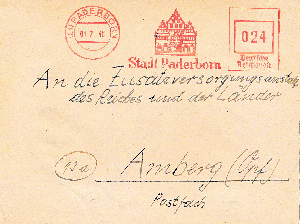 PADERBORN
024
Stadt Paderborn
Deutsche
Reichspost
An die Zusatzversorgungsanstalt
des Reiches und der Länder
13a
Amberg (Opf)
Postfach